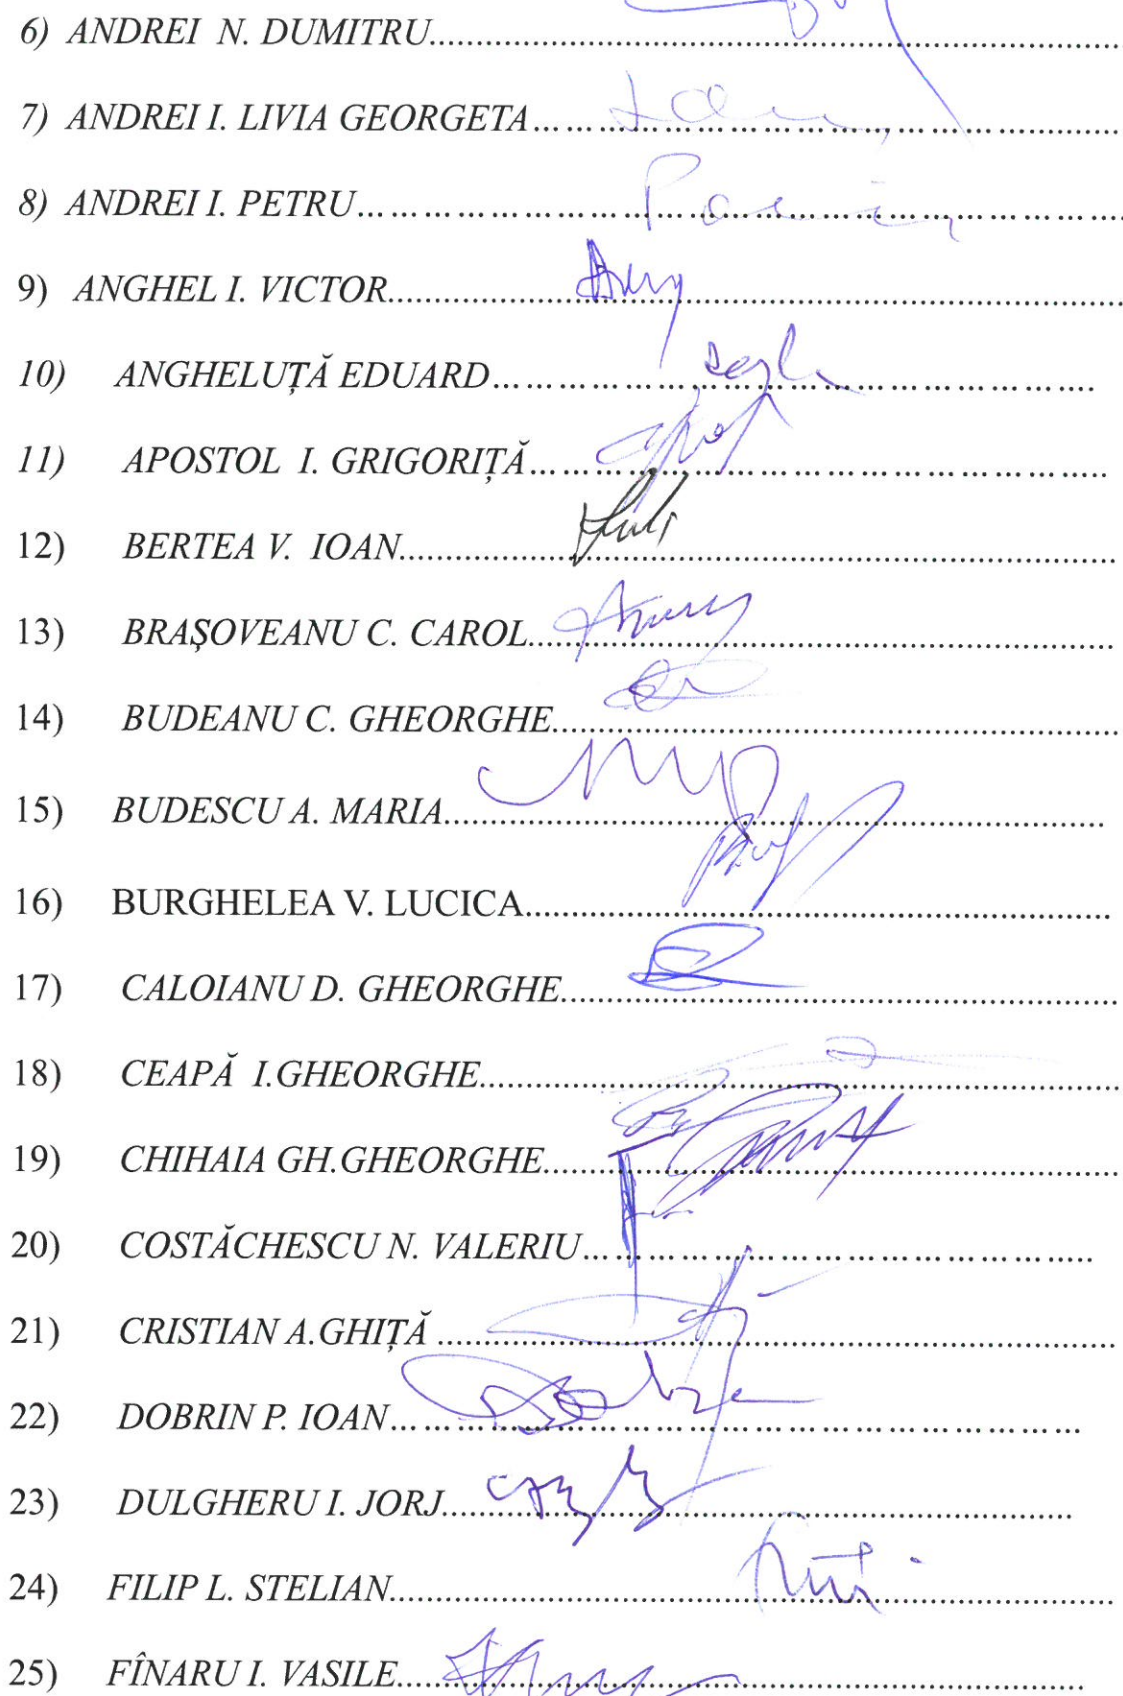 6) ANDREI N. DUMITRU
7) ANDREI I. LIVIA GEORGETA
8) ANDREI I. PETRU
9) ANGHEL I. VICTOR
10) ANGHELUȚĂ EDUARD
11) APOSTOL I. GRIGORIȚĂ
12) BERTEA V. IOAN
13) BRAȘOVEANU C. CAROL
14) BUDEANU C. GHEORGHE
15) BUDESCU A. MARIA
16) BURGHELEA V. LUCICA
17) CALOIANU D. GHEORGHE
18) CEAPĂ I.GHEORGHE
19) CHIHAIA GH.GHEORGHE
20) COSTĂCHESCU N. VALERIU
21) CRISTIAN A.GHIȚĂ
22) DOBRIN P. IOAN
23) DULGHERU I. JORJ
24) FILIP L. STELIAN
25) FÎNARU I. VASILE